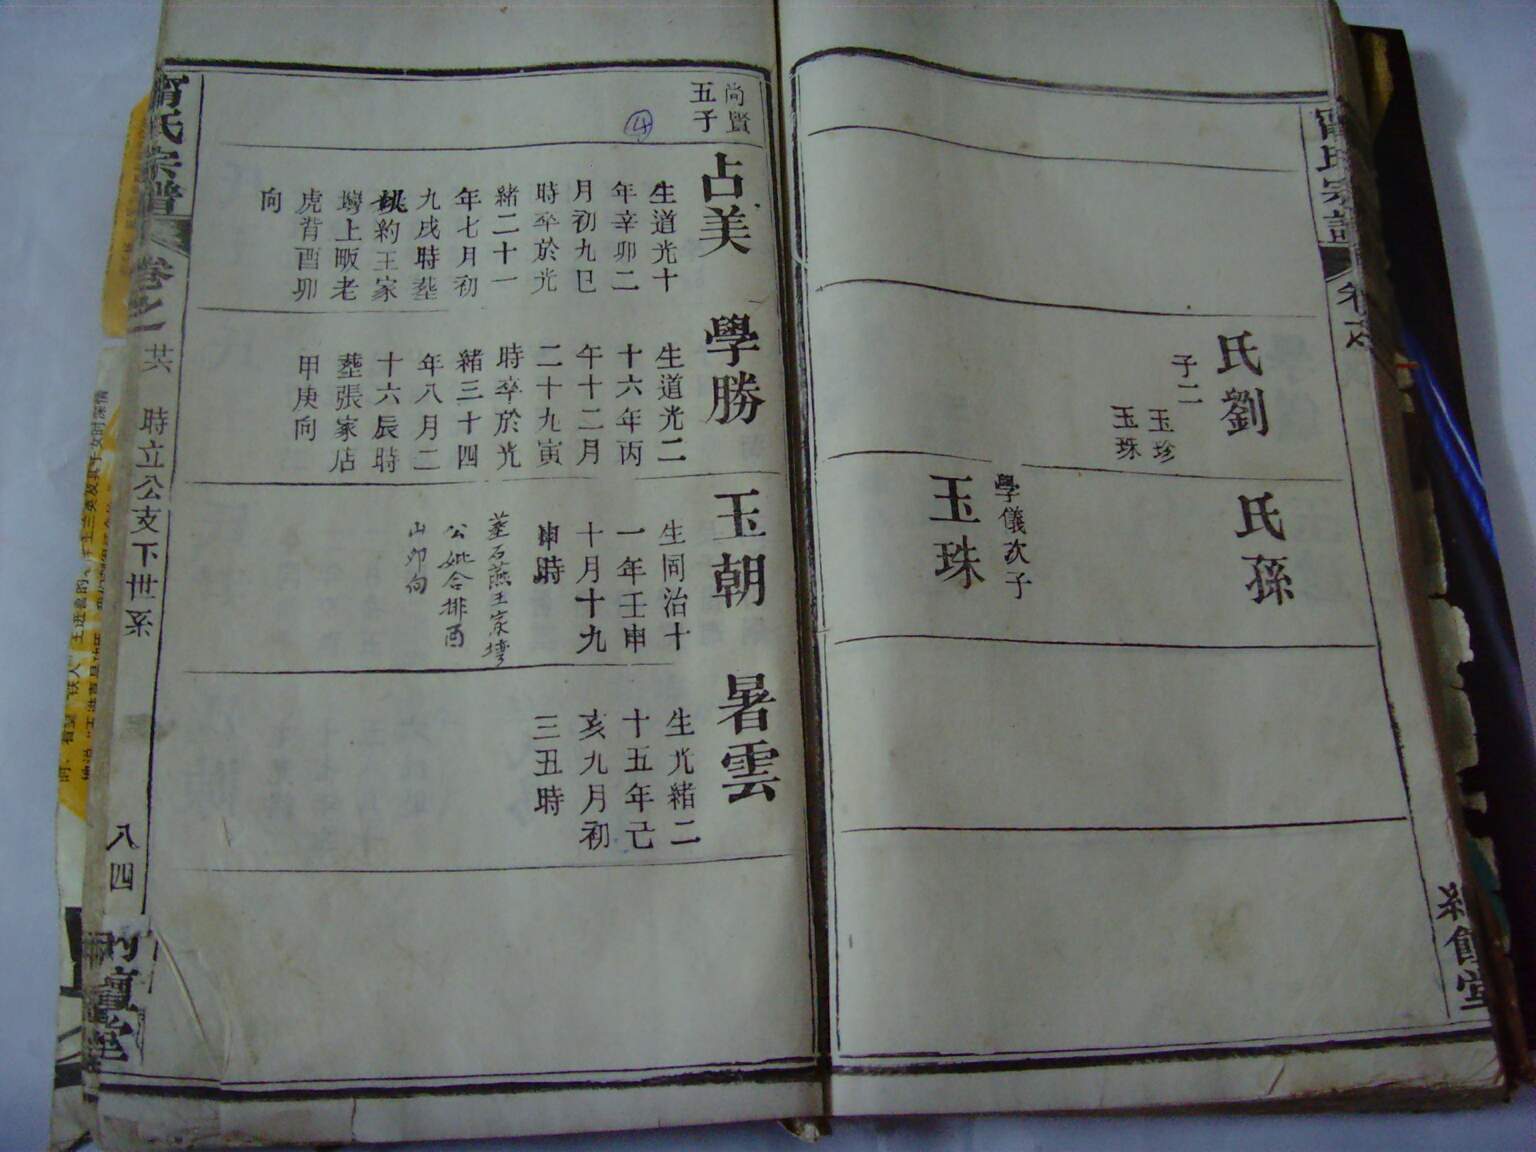 氏劉
子二
玉珍
玉珠
氏孫
學儀次子
玉珠
尚賢
五子
④
占美
生道光十
年辛卯二
月初九巳
時卒於光
緒二十一
年七月初
九戌時塟
姚約王家
塆上畈老
虎背酉卯
向
學勝
生道光二
十六年丙
午十二月
二十九寅
時卒於光
緒三十四
年八月二
十六辰時
塟張家店
甲庚向
玉朝
生同治十
一年壬申
十月十九
申時
塟石燕王家塆
公妣合排酉
山卯向
暑雲
生光緒二
十五年己
亥九月初
三丑時
甯氏宗譜
卷之一
時立公支下世系
八四